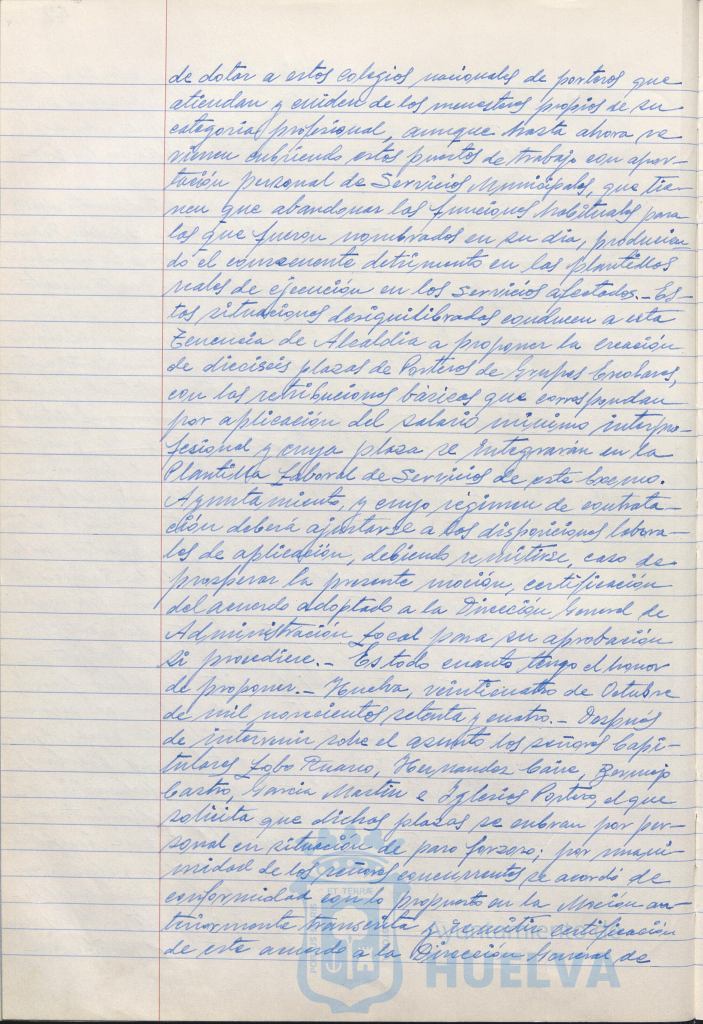 de dotar a estos colegios nacionales de porteros que
atiendan y cuiden de los menesteres propios de su
categoría profesional, aunque hasta ahora se
vienen cubriendo estos puestos de trabajo con apor-
tación personal de Servicios Municipales, que tie-
nen que abandonar las funciones habituales para
las que fueron nombrados en su dia, producien-
do el consecuente detrimento en las plantillas
reales de ejecución en los servicios afectados.- Es-
tas situaciones desequilibradas conducen a esta
Tenencia de Alcaldia a proponer la creación
de dieciseis plazas de Porteros de Grupos Escolares,
con las retribuciones básicas que correspondan
por aplicación del salario mínimo interpro-
fesional y cuya plaza se integrarán en la
Plantilla Laboral de Servicios de este Excmo.
Ayuntamiento, y cuyo régimen de contrata-
ción deberá ajustarse a las disposiciones labora-
les de aplicación, debiendo remitirse, caso de
prosperar la presente moción, certificación
del acuerdo adoptado a la Dirección General de
Administración Local para su aprobación
si procediere.- Es todo cuanto tengo el honor
de proponer.- Huelva, veinticuatro de Octubre
de mil novecientos setenta y cuatro.- Después
de intervenir sobre el asunto los señores Capi-
tulares Lobo Ruano, Hernandez Cañe, Bermejo
Castro, Garcia Martin e Iglesias Portero, el que
solicita que dichas plazas se cubran por per-
sonal en situación de paro forzoso; por unani-
midad de los señores concurrentes se acordó de
conformidad con lo propuesto en la Moción an-
teriormente transcrita y remitir certificación
de este acuerdo a la Dirección General de
Ayuntamiento de
HUELVA